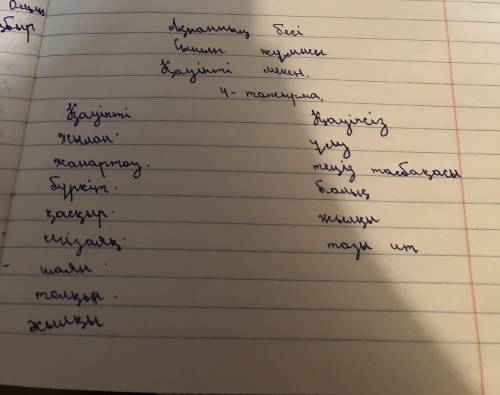 Ақпанның бесі
Сынып жұмысы
Қауіпті мекен.
4-тапсырма.
Қауіпті Қауіпсіз
жылан ұлу
жанартау. теңіз тасбақасы
бүркіт. балық
қасқыр. жылқы
сегізаяқ. тазы ит
- шаян
толқын.
жылқы